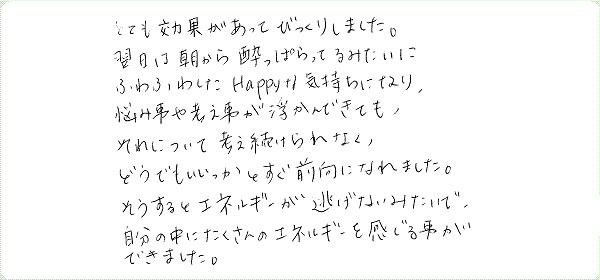 とても効果があってびっくりしました。
翌日は朝から酔っぱらってるみたいに
ふわふわしたHappyな気持ちになり、
悩み事や考え事が浮かんできても、
それについて考え続けられなく、
どうでもいいっかとすぐ前向になれました。
そうするとエネルギーが逃げないみたいで、
自分の中にたくさんのエネルギーを感じる事が
できました。